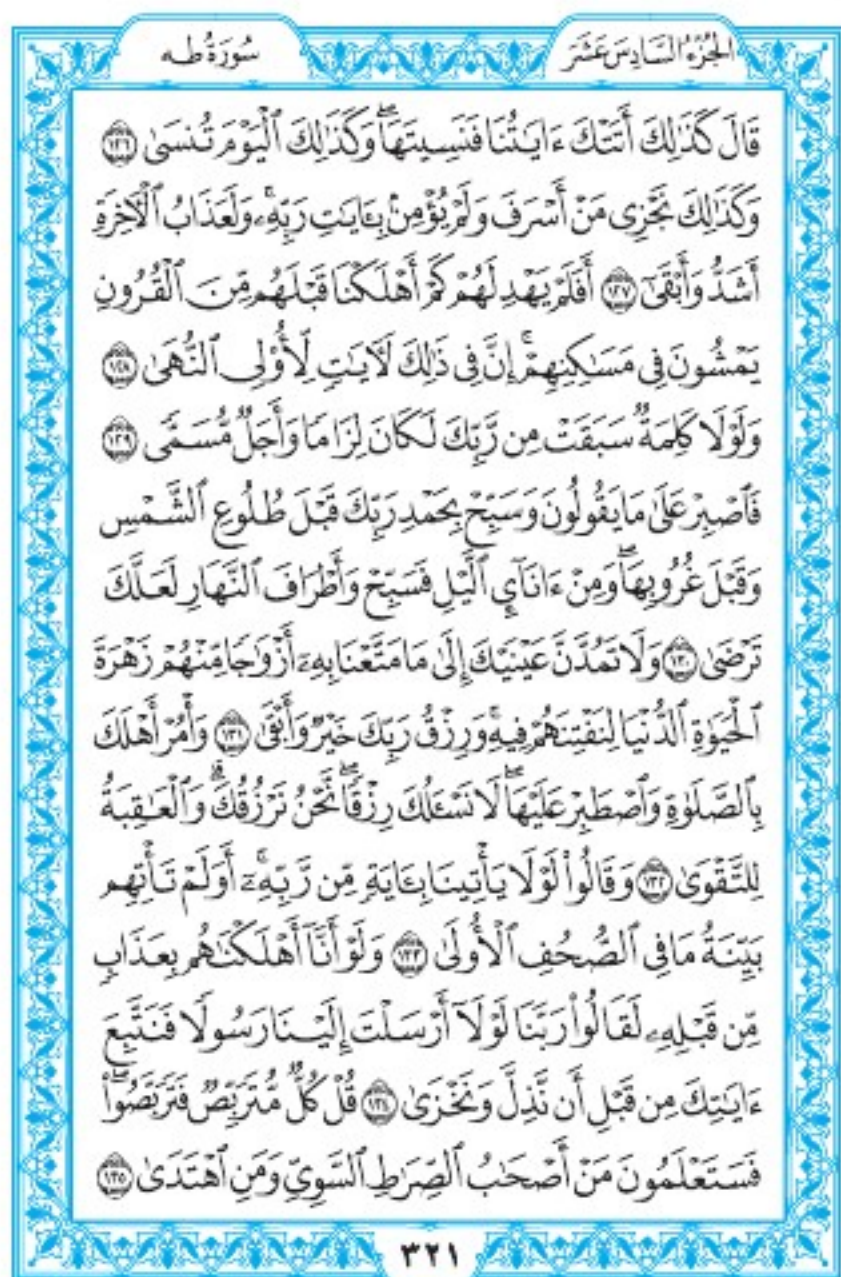 الجُزْءُ السَّادِسَ عَشَرَ
سُورَةُ طه
قَالَ كَذَٰلِكَ أَتَتْكَ ءَايَٰتُنَا فَنَسِيتَهَاۖ وَكَذَٰلِكَ ٱلْيَوْمَ تُنسَىٰ ١٢٦
وَكَذَٰلِكَ نَجْزِى مَنْ أَسْرَفَ وَلَمْ يُؤْمِنۢ بِـَٔايَٰتِ رَبِّهِۦۚ وَلَعَذَابُ ٱلْءَاخِرَةِ
أَشَدُّ وَأَبْقَىٰٓ ١٢٧ أَفَلَمْ يَهْدِ لَهُمْ كَمْ أَهْلَكْنَا قَبْلَهُم مِّنَ ٱلْقُرُونِ
يَمْشُونَ فِى مَسَٰكِنِهِمْۚ إِنَّ فِى ذَٰلِكَ لَءَايَٰتٍ لِّأُو۟لِى ٱلنُّهَىٰ ١٢٨
وَلَوْلَا كَلِمَةٌ سَبَقَتْ مِن رَّبِّكَ لَكَانَ لِزَامًا وَأَجَلٌ مُّسَمًّى ١٢٩
فَٱصْبِرْ عَلَىٰ مَا يَقُولُونَ وَسَبِّحْ بِحَمْدِ رَبِّكَ قَبْلَ طُلُوعِ ٱلشَّمْسِ
وَقَبْلَ غُرُوبِهَاۖ وَمِنْ ءَانَآئِ ٱلَّيْلِ فَسَبِّحْ وَأَطْرَافَ ٱلنَّهَارِ لَعَلَّكَ
تَرْضَىٰ ١٣٠ وَلَا تَمُدَّنَّ عَيْنَيْكَ إِلَىٰ مَا مَتَّعْنَا بِهِۦٓ أَزْوَٰجًا مِّنْهُمْ زَهْرَةَ
ٱلْحَيَوٰةِ ٱلدُّنْيَا لِنَفْتِنَهُمْ فِيهِۚ وَرِزْقُ رَبِّكَ خَيْرٌ وَأَبْقَىٰ ١٣١ وَأْمُرْ أَهْلَكَ
بِٱلصَّلَوٰةِ وَٱصْطَبِرْ عَلَيْهَاۖ لَا نَسْـَٔلُكَ رِزْقًاۖ نَّحْنُ نَرْزُقُكَۗ وَٱلْعَٰقِبَةُ
لِلتَّقْوَىٰ ١٣٢ وَقَالُوا۟ لَوْلَا يَأْتِينَا بِـَٔايَةٍ مِّن رَّبِّهِۦٓۚ أَوَلَمْ تَأْتِهِم
بَيِّنَةُ مَا فِى ٱلصُّحُفِ ٱلْأُولَىٰ ١٣٣ وَلَوْ أَنَّآ أَهْلَكْنَٰهُم بِعَذَابٍ
مِّن قَبْلِهِۦ لَقَالُوا۟ رَبَّنَا لَوْلَآ أَرْسَلْتَ إِلَيْنَا رَسُولًا فَنَتَّبِعَ
ءَايَٰتِكَ مِن قَبْلِ أَن نَّذِلَّ وَنَخْزَىٰ ١٣٤ قُلْ كُلٌّ مُّتَرَبِّصٌ فَتَرَبَّصُوا۟ۖ
فَسَتَعْلَمُونَ مَنْ أَصْحَٰبُ ٱلصِّرَٰطِ ٱلسَّوِىِّ وَمَنِ ٱهْتَدَىٰ ١٣٥
٣٢١